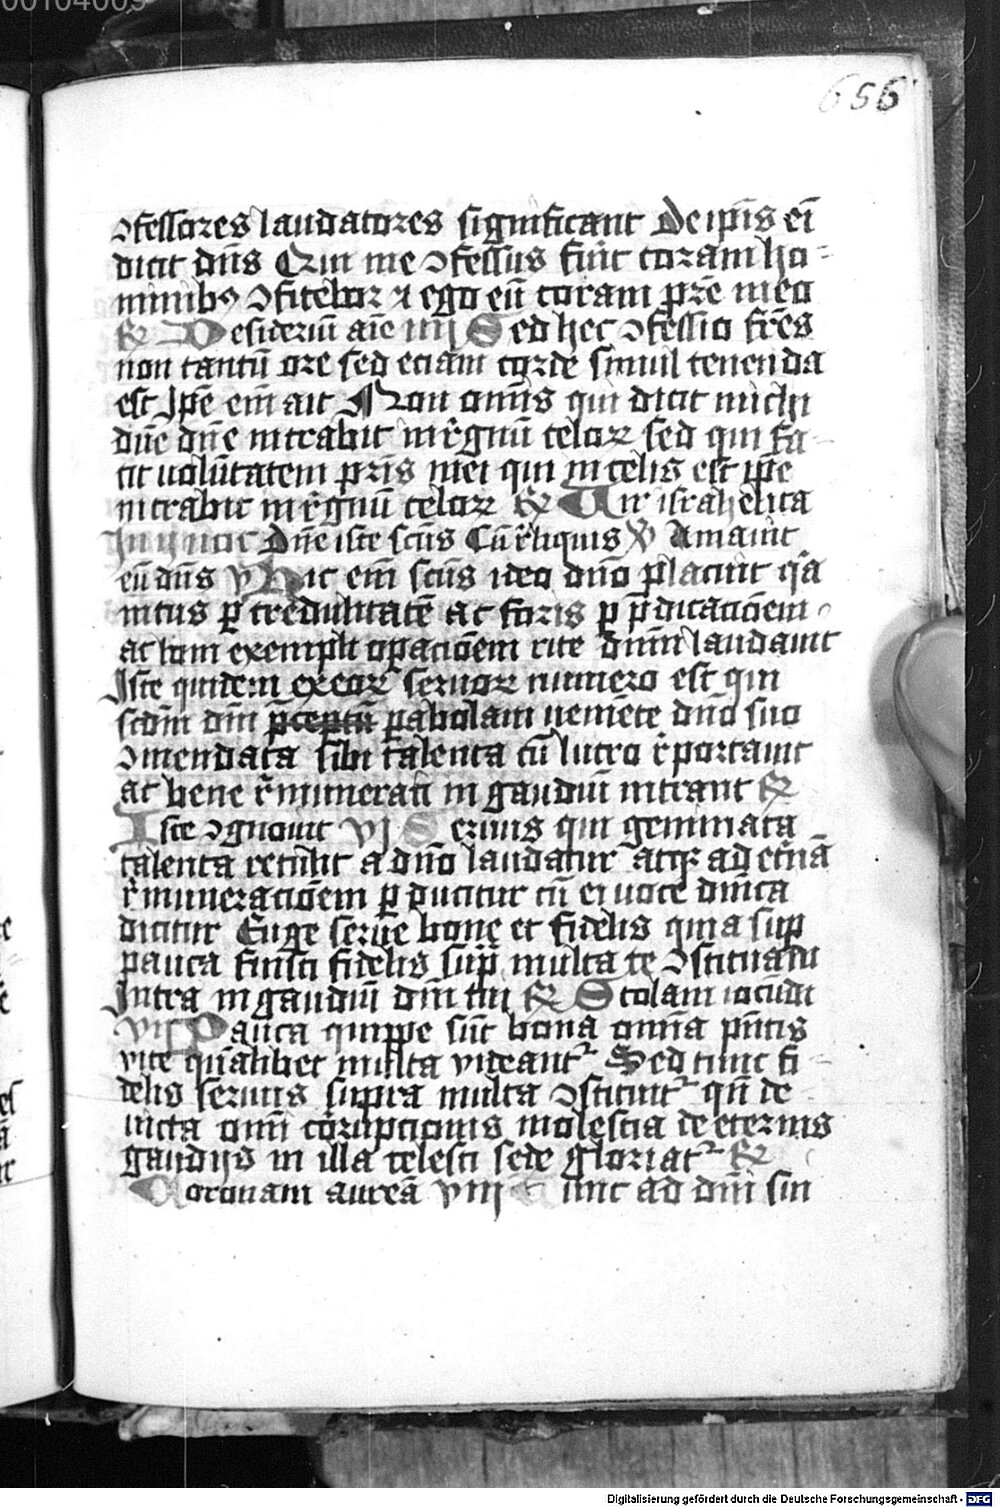 00104009
656
ↄfessores laudatores significant De ip̄is ei̅
dicit dn̄s Qui me ↄfessus fu̅it coram ho-
minibꝰ ↄfitebor ⁊ ego eū coram pr̄e meo
℟ Desideriū aīe iiij Sed hec ↄfessio fr̄es
non tantū ore sed eciam corde simul tenenda
est Ip̄e em̄ ait Non om̄is qui dicit michi
dn̄e dn̄e intrabit in r̄gnū celoꝝ sed qui fa-
cit volūtatem pr̄is mei qui in celis est ip̄e
intrabit in r̄gnū celoꝝ ℟ Vir israhelita
In ij noct Dn̄e iste scūs Cū r̄liquis ꝟ Amauit
eū dn̄s v Hic em̄ scūs ideo dn̄o placuit q̄a
intus ꝑ credulitatē ac foris ꝑ p̄dicacōem
ac boni exempli opacōem rite dn̄m laudauit
Iste quidem ex eoꝝ seruoꝝ numero est qui
scdm̄ dn̄i p̄ceptū ꝑabolam veniēte dn̄o suo
ↄmendata sibi talenta cū lucro r̄portauit
ac bene r̄munerati in gaudiū intrant ℟
Iste ↄgnouit vj Seruus qui geminata
talenta retulit a dn̄o laudatur atqꝫ ad et̄nā
r̄muneracōem ꝑducitur cū ei voce dn̄ica
dicitur Euge serue bone et fidelis quia sup̄
pauca fuisti fidelis sup̄ multa te ↄstituam
Intra in gaudiū dn̄i tui ℟ Stolam iocūdi
vij Pauca quippe sūt bona omīa pn̄tis
vite qūalibet multa videant᷑ Sed tunc fi-
delis seruus supra multa ↄstituit᷑ qn̄ de-
uicta omi̅ corrupcionis molestia de eternis
gaudijs in illa celesti sede gloriat᷑ ℟
Coronam aureā viij Tunc ad dn̄i sui
Digitalisierung gefördert durch die Deutsche Forschungsgemeinschaft - DFG